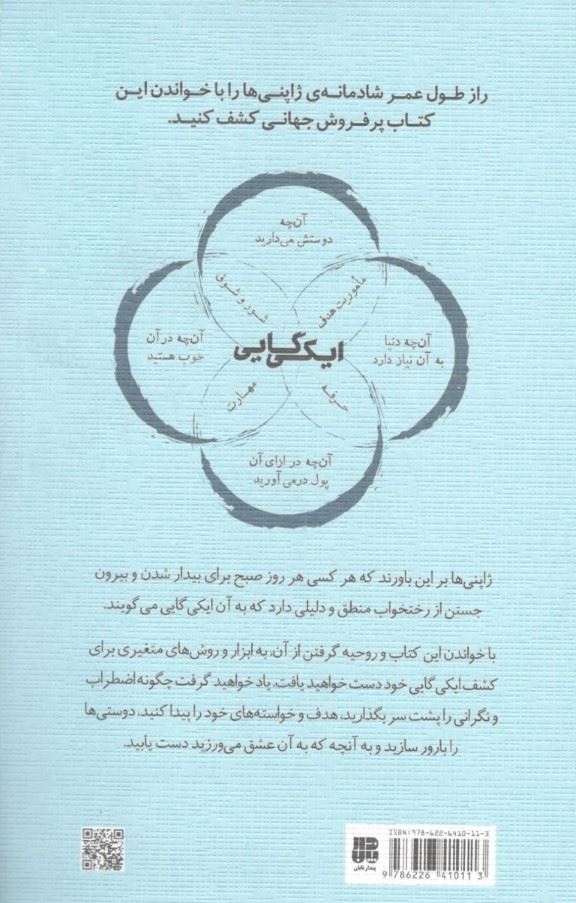 راز طول عمر شادمانه‌ی ژاپنی‌ها را با خواندن این
کتاب پرفروش جهانی کشف کنید.
آن‌چه
دوستش می‌دارید
شور و شوق
مأموریت هدف
آن‌چه در آن
خوب هستید
ایکی‌گایی
آن‌چه دنیا
به آن نیاز دارد
مهارت
حرفه
آن‌چه در ازای آن
پول درمی‌آورید
ژاپنی‌ها بر این باورند که هر کسی هر روز صبح برای بیدار شدن و بیرون
جستن از رختخواب منطق و دلیلی دارد که به آن ایکی گایی می‌گویند.
با خواندن این کتاب و روحیه گرفتن از آن، به ابزار و روش‌های متغیری برای
کشف ایکی گایی خود دست خواهید یافت. یاد خواهید گرفت چگونه اضطراب
و نگرانی را پشت سر بگذارید، هدف و خواسته‌های خود را پیدا کنید، دوستی‌ها
را بارور سازید و به آنچه که به آن عشق می‌ورزید دست یابید.
ISBN: 978-622-6410-11-3
9 786226 410113
پندار تابان